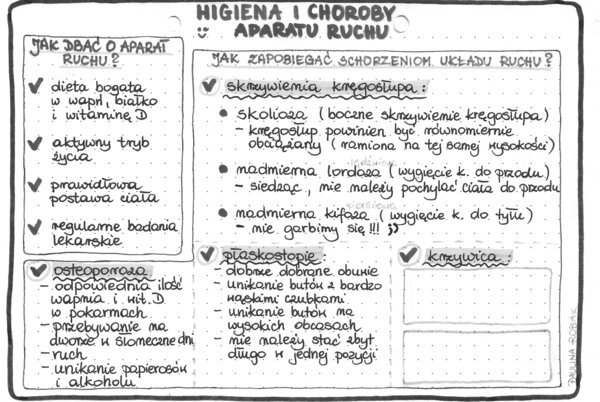 HIGIENA I CHOROBY
APARATU RUCHU
JAK DBAĆ O APARAT
RUCHU?
dieta bogata
w wapń, białko
i witaminę D
aktywny tryb
życia
prawidłowa
postawa ciała
regularne badania
lekarskie
JAK ZAPOBIEGAĆ SCHORZENIOM UKŁADU RUCHU?
skrzywienia kręgosłupa:
skolioza (boczne skrzywienie kręgosłupa)
- kręgosłup powinien być równomiernie
obciążany (ramiona na tej samej wysokości)
lędźwiowa
nadmierna lordoza (wygięcie k. do przodu)
- siedząc, nie należy pochylać ciała do przodu
piersiowa
nadmierna kifoza (wygięcie k. do tyłu)
- nie garbimy się!!!
osteoporoza
- odpowiednia ilość
wapnia i wit. D
w pokarmach
- przebywanie na
dworze w słoneczne dni
- ruch
- unikanie papierosów
i alkoholu
płaskostopie:
- dobrze dobrane obuwie
- unikanie butów z bardzo
wąskimi czubkami
- unikanie butów na
wysokich obcasach
- nie należy stać zbyt
długo w jednej pozycji
krzywica:
PAULINA ROBAK